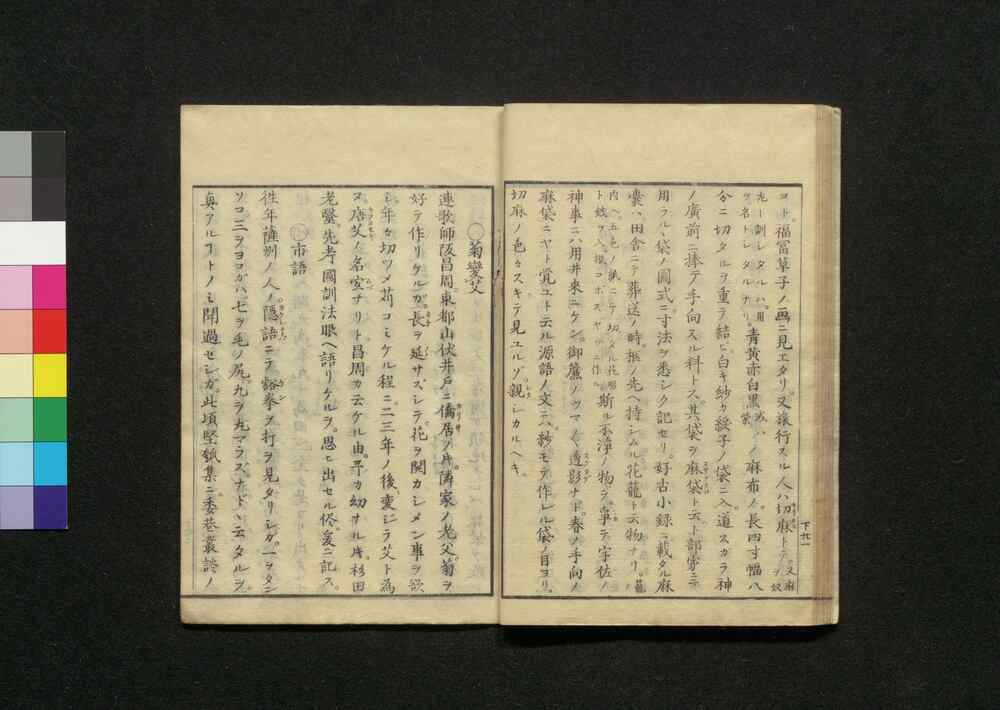 コト。福冨草子ノ画ニ見エタリ。又旅行スル人ハ切麻トテ。又麻ヲ奴
九ート訓レタルハ。用ヲ名トレタルナリ。青黄赤白黒或ハ紫ノ麻布ノ。長四寸幅八
分ニ切タルヲ重テ結ヒ。白キ紗カ綾子ノ袋ニ入。道スカラ神
ノ廣前ニ捧テ手向スル料トス。其袋ヲ麻袋ト云ト部家ニテ
用フル袋ノ圖式ニ寸法ヲ悉シク記セリ。好古小録ニ載タル麻
嚢ハ田舎ニテ葬送ノ時。柩ノ先ヘ持シムル花籠ト云物ナリ。籠
内ヘ五色ノ紙ニテ切タル花ト蛟ヲ入。撒コボスヤウニ作 斯ル不淨ノ物ヲ。爭テ宇佐ノ
神事ニハ用井來ニケン。御簾ノツマ〻透影ナド。春ノ手向ノ
麻袋ニヤト覚ユト云ル源語ノ文ニ。紗モテ作レル袋ノ目ヨリ。
切麻ノ色〻スキテ見ユルゾ親シカルヘキ。
下廿一
〇菊變艾
連歌師阪昌周。東都山伏井戸ニ僑居ヲ片。隣家ノ老父。菊ヲ
好テ作リケルガ。長ヲ延サズシテ花ヲ開カシメン事ヲ欲
ミ年々切ツメ苅コミケル程ニ。二三年ノ後。変シテ艾ト為
ヌ。瘖艾ノ名空ナリト昌周カ云ケル由。予カ幼サル片杉田
老翳。先考國訓法眼ヘ語リケルヲ。思ヒ出セル侭爰ニ記ス。
〇市語
徃年薩州ノ人ノ。隠語ニテ豁拳ヲ打ヲ見タリシガ。一ヲタン
ソコ三ヲヨコガハ。七ヲ毛ノ尻。九ヲ丸マラズ。ナド〻云タルヲ。
真アルコトノミ聞過セシガ。此頃堅瓠集ニ。委巷叢談ノ